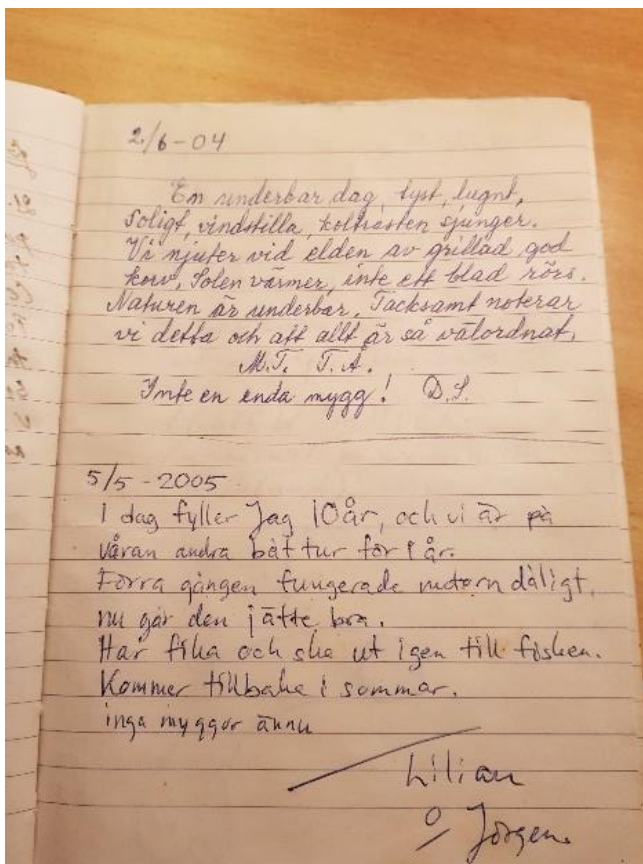 2/6-04
En underbar dag, tyst, lugnt,
soligt, vindstilla, koltrasten sjunger.
Vi njuter vid elden av grillad god
korv. Solen värmer, inte ett blad rörs.
Naturen är underbar. Tacksamt noterar
vi detta och att allt är så välordnat.
M.T. T.A.
Inte en enda mygg! D.S.
5/5-2005
I dag fyller Jag 10år, och vi är på
våran andra båt tur för i år.
Förra gången fungerade motorn dåligt,
nu går den jätte bra.
Har fika och ska ut igen till fisken.
Kommer tillbaka i sommar.
inga myggor ännu
Lilian
o Jörgen.